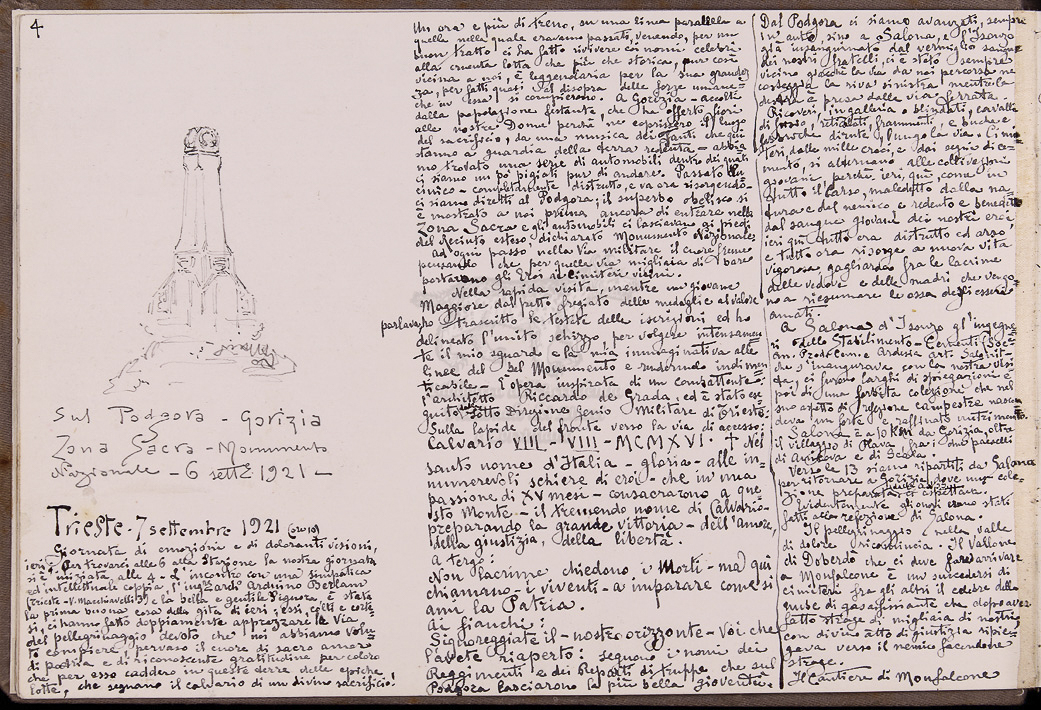 4
Sul Podgora - Gorizia
Zona Sacra - Monumento
Nazionale - 6 sett.e 1921 -
Trieste - 7 settembre 1921 (ore 10)
Giornata di emozioni e di doloranti visioni,
ieri. Per trovarci alle 6 alla Stazione la nostra giornata
si è iniziata alle 4 - L'incontro con una simpatica
ed intellettuale coppia, l'ing. Arduino Berlam
(Trieste - V. Macchiavelli) e la bella e gentile Signora, è stata
la prima buona cosa della gita di ieri; essi, colti e corte-
si, ci hanno fatto doppiamente apprezzare la via
del pellegrinaggio devoto che noi abbiamo volu-
to compiere, pervaso il cuore di sacro amore
di patria e di riconoscente gratitudine per coloro
che per esso caddero in queste terre delle epiche
lotte, che segnano il calvario di un divino sacrificio!
Un ora e più di treno, su una linea parallela a
quella nella quale eravamo passati, venendo, per un
buon tratto ci ha fatto rivivere coi nomi celebri
alla cruenta lotta che più che storica, pur così
vicina a noi, è leggendaria per la sua grandez-
za, per fatti quasi al disopra delle forze umane
che in essa si compierono. A Gorizia - accolti
dalla popolazione festante, che ha offerto fiori
alle nostre Donne perchè ne coprissero il luogo
del sacrificio, da una musica dei fanti che qui
stanno a guardia della terra redenta - abbia-
mo trovato una serie di automobili dentro dei quali
ci siamo un po' pigiati pur di andare. Passato
- completamente distrutto, e va ora risorgendo -
ci siamo diretti al Podgora; il superbo obelisco si
è mostrato a noi prima ancora di entrare nella
Zona Sacra e gli automobili ci lasciavano ai piedi
del Recinto esteso, dichiarato Monumento Nazionale
ad ogni passo nella via militare il cuore freme
pensando che per quella via migliaia di bare
portarono gli Eroi ai cimiteri vicini.
Nella rapida visita, mentre un giovane
Maggiore dal petto fregiato delle medaglie al valore
parlava, ho trascritto le testate delle iscrizioni ed ho
delineato l'unito schizzo per volgere intensamen-
te il mio sguardo e la mia immaginativa alle
linee del Monumento e rendermelo indimen-
ticabile - L'opera inspirata di un combattente
l'architetto Riccardo de Grada, ed è stato ese-
guito sotto Direzione Genio Militare di Oriesti
Sulla lapide sul fronte verso la via di accesso:
Calvario VIII - VIII - MCMXVI. † Nel
santo nome d'Italia - gloria - alle in-
numerevoli schiere di eroi - che in una
passione di XV mesi - consacrarono a que-
sto Monte - il tremendo nome di Calvario -
preparando la grande vittoria - dell'amore,
della giustizia, della libertà.
a tergo:
Non lacrime chiedono i Morti - ma qui
chiamano - i viventi - a imparare come si
ami la Patria.
ai fianchi:
Signoreggiate il - nostro orizzonte - Voi che
l'avete riaperto: seguono i nomi dei
Reggimenti e dei Reparti di truppe che sul
Podgora lasciarono la più bella gioventù.
Dal Podgora ci siamo avanzati, sempre
in auto sino a Salona, e l'Isonzo
già insanguinato dal vermiglio sangue
dei nostri fratelli, ci è stato sempre
vicino giacchè la via da noi percorsa ne
costeggia la riva sinistra mentre la
destra è presa dalla via ferrata.
Ricoveri in galleria o blindati, cavalli
di frisia, reticolati, frammenti, e buche e
rocche dirute, lungo la via. Cimi-
teri dalle mille croci, e dai segni di ce-
mento, si alternano alle colline sorri
giovani, perchè ieri, qui, come in
tutto il Carso, maledetto dalla na-
tura e del nemico e redento e benedetto
dal sangue giovane dei nostri eroi
ieri qui tutto era distrutto ed arso,
e tutto ora risorge a nuova vita
vigorosa, gagliarda fra le lacrime
delle vedove e delle madri che vengo-
no a riesumare le ossa degli esseri
amati.
A Salona d'Isonzo gl'ingegne-
ri dello Stabilimento - Cementi (Soc.
An. Prod. Cem. e Ardesia art. Salonit-
che s'inaugurava con la nostra visi-
ta, ci furono larghi di spiegazioni e
poi di una forbita colezione che nel
suo aspetto di refezione campestre nascon-
deva un forte e raffinato nutrimento.
Salona è a 10 Km da Gorizia, oltre
il villaggio di Plava, fra i due paeselli
di e di Scala.
Verso le 13 siamo ripartiti da Salona
per ritornare a Gorizia dove una cole-
zione preparataci ci aspettava.
Evidentemente gl'ignori erano stati
fatti alla refezione di Salona.
Il pellegrinaggio e nella valle
di dolore ricomincia - Il Vallone
di Doberdò che ci deve far arrivare
a Monfalcone è un succedersi di
cimiteri fra gli altri il celebre della
nube di gas asfissiante che dopo aver
fatto strage di migliaia di nostri
con divino atto di giustizia ripie-
gava verso il nemico facendone
strage.
Il Cantiere di Monfalcone